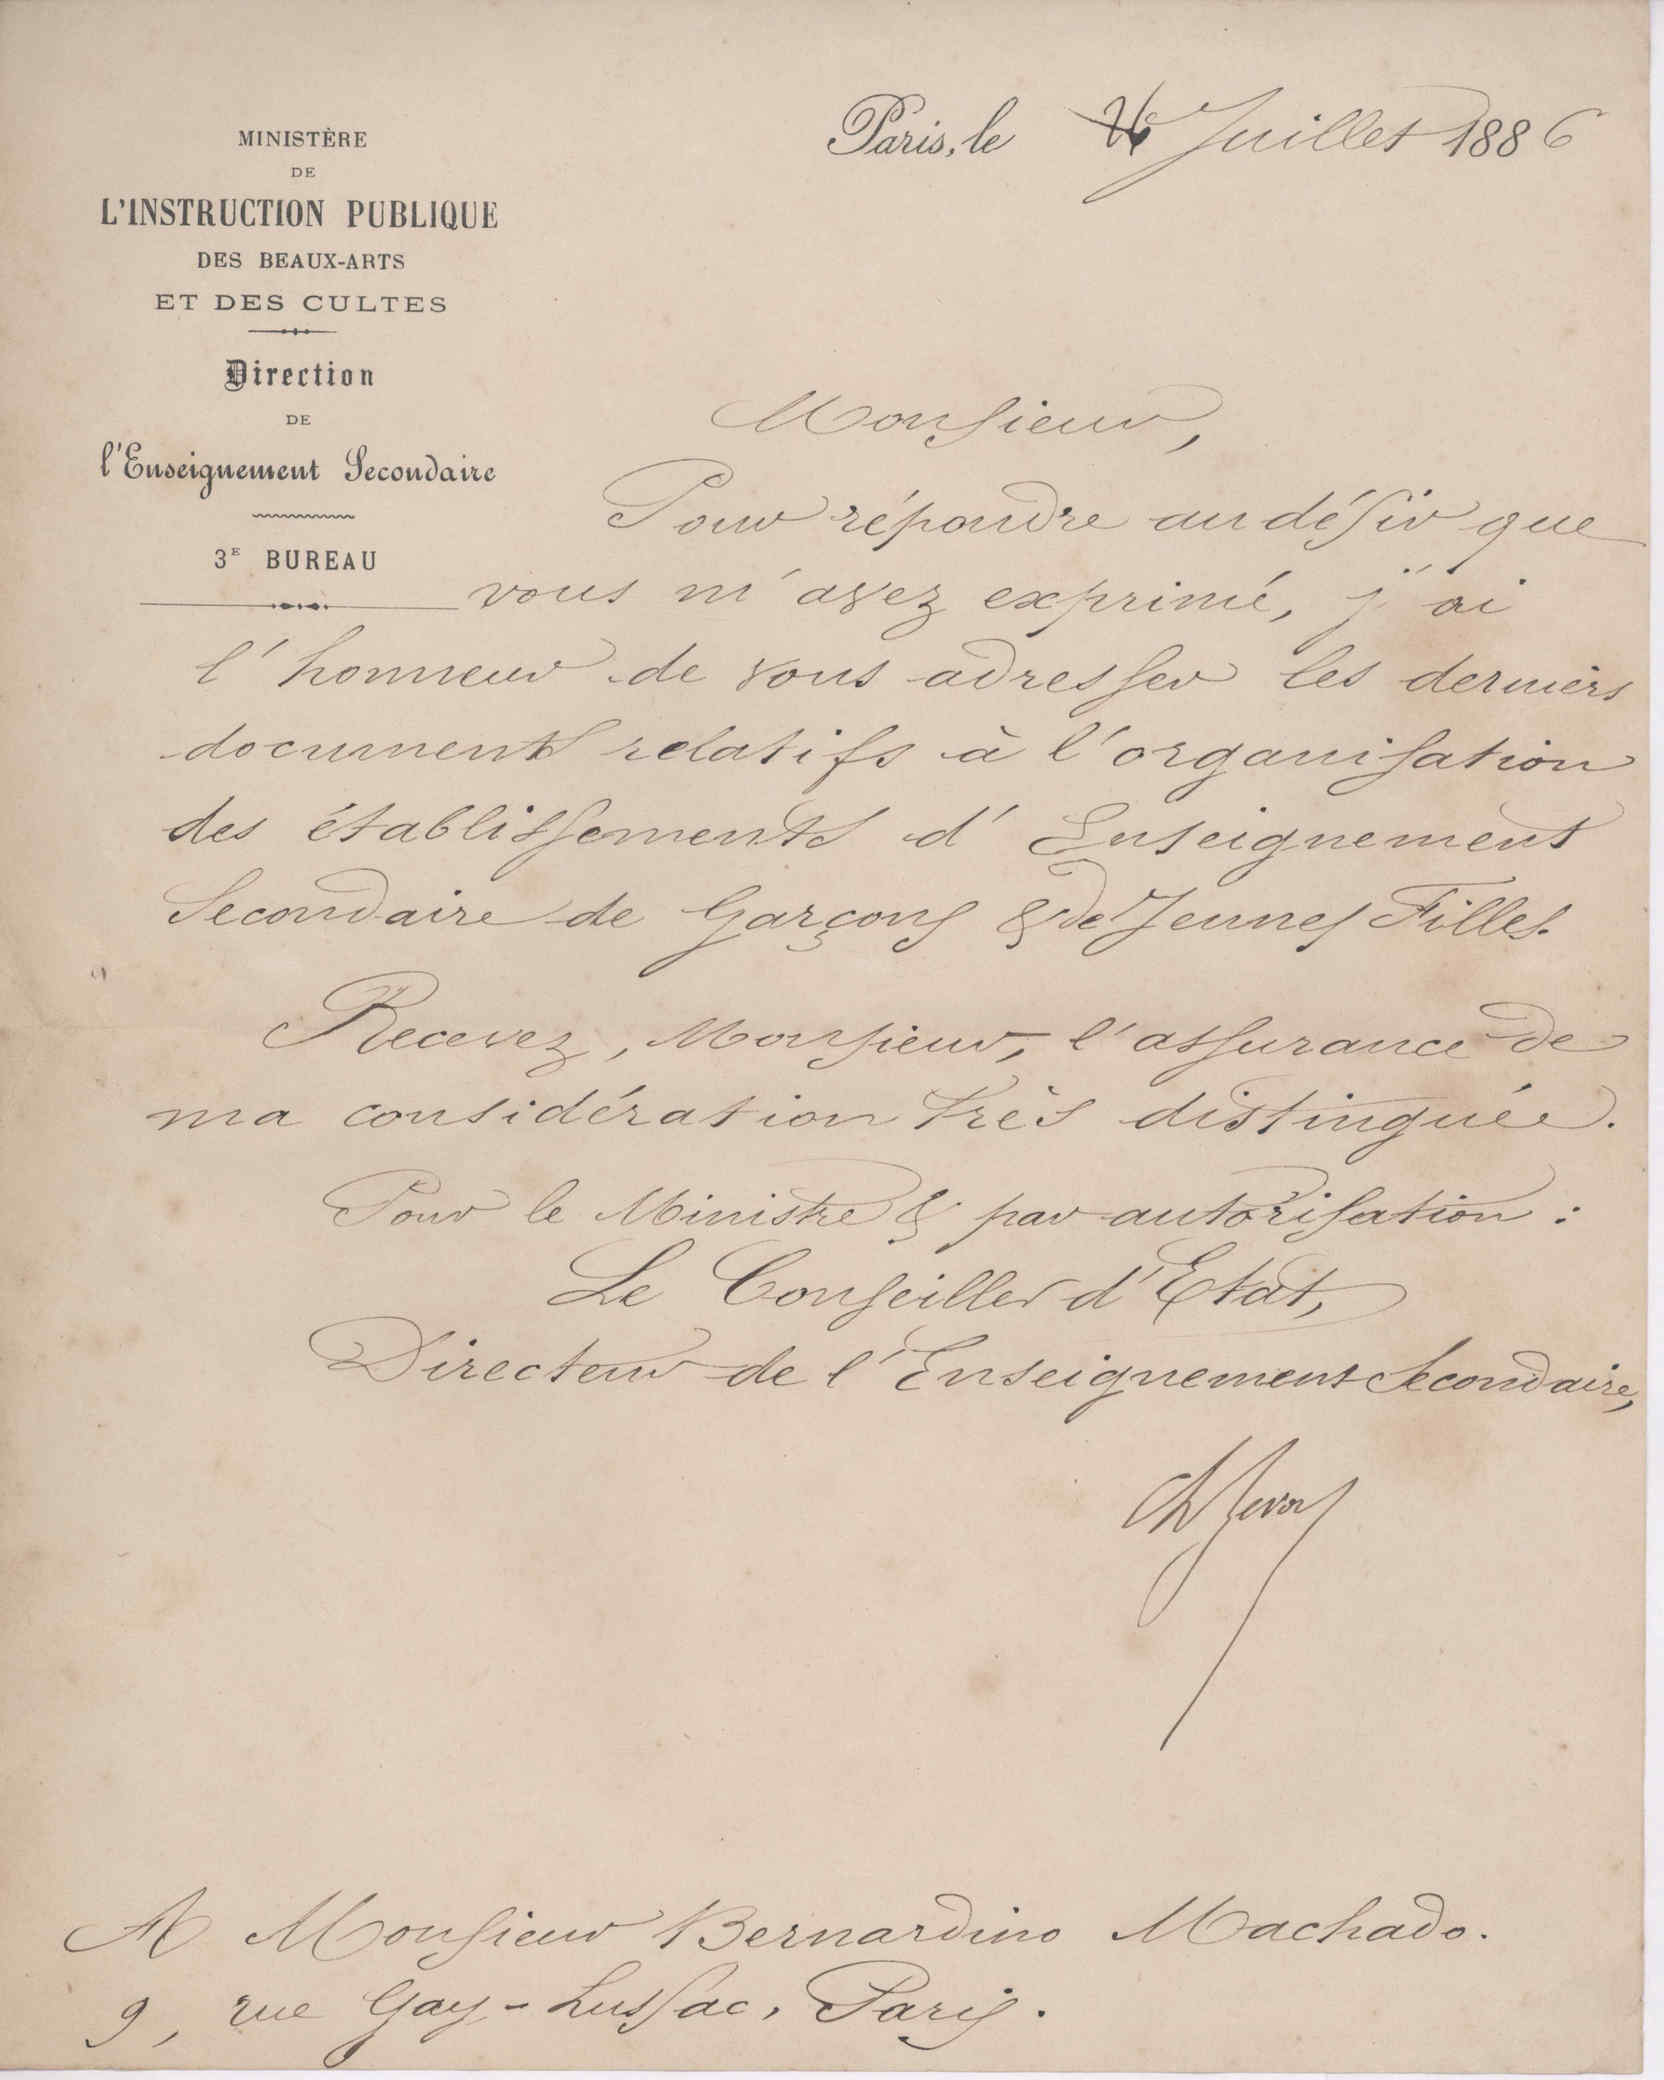 MINISTÈRE
DE
L'INSTRUCTION PUBLIQUE
DES BEAUX-ARTS
ET DES CULTES
Direction
DE
l'Enseignement Secondaire
3E BUREAU
Paris, le Juillet 1886
Monsieur,
Pour répondre au désir que
vous m'avez exprimé, j'ai
l'honneur de vous adresser les derniers
documents relatifs à l'organisation
des établissements d'Enseignement
Secondaire de Garçons & de Jeunes Filles.
Recevez, Monsieur, l'assurance de
ma considération très distinguée.
Pour le Ministre & par autorisation :
Le Conseiller d'Etat,
Directeur de l'Enseignement Secondaire,
A Monsieur Bernardino Machado.
9, rue Gay-Lussac, Paris.